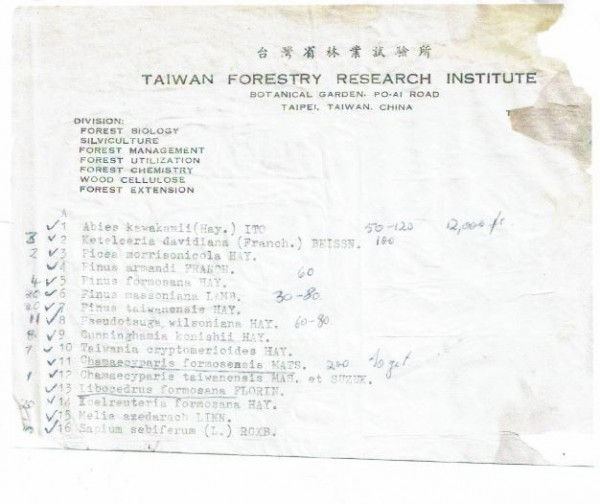 台灣省林業試驗所
TAIWAN FORESTRY RESEARCH INSTITUTE
BOTANICAL GARDEN. PO-AI ROAD
TAIPEI, TAIWAN. CHINA
DIVISION:
FOREST BIOLOGY
SILVICULTURE
FOREST MANAGEMENT
FOREST UTILIZATION
FOREST CHEMISTRY
WOOD CELLULOSE
FOREST EXTENSION
✓1 Abies kawakamii(Hay.) ITO 50-120 12,000 ft.
3 ✓2 Keteleeria davidiana (Franch.) BEISSN. 100
2 ✓3 Picea morrisonicola HAY.
✓4 Pinus armandi FRANCH. 60
4 ✓5 Pinus formosana HAY.
✓6 Pinus massoniana LAMB. 30-80
✓7 Pinus taiwanensis HAY.
11 ✓8 Pseudotsuga wilsoniana HAY. 60-80
8 ✓9 Cunninghamia konishii HAY.
7 ✓10 Taiwania cryptomerioides HAY.
✓11 Chamaecyparis formosensis MATS. 200 to get
1 ✓12 Chamaecyparis taiwanensis MAS. et SUZUK.
✓13 Libocedrus formosana FLORIN.
✓14 Koelreuteria formosana HAY.
✓15 Melia azedarach LINN.
✓16 Sapium sebiferum (L.) ROXB.